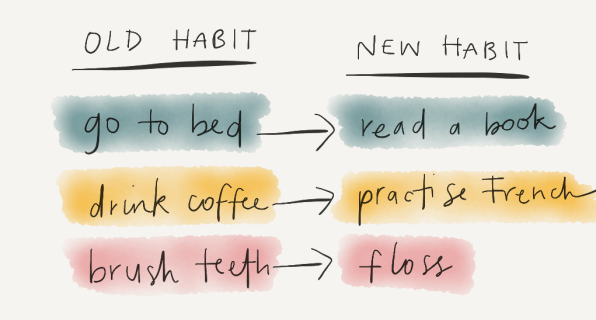 OLD HABIT NEW HABIT
go to bed → read a book
drink coffee → practise French
brush teeth → floss